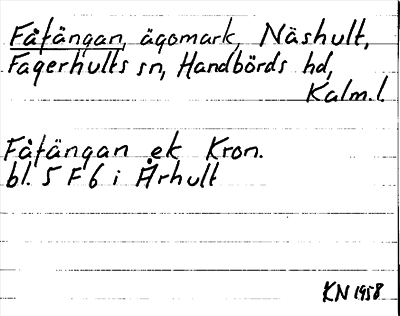 Fåfängan, ägomark, Näshult,
Fagerhults sn, Handbörds hd,
Kalm.l.
Fåfängan ek Kron.
bl. 5 F 6 i Århult
KN 1958